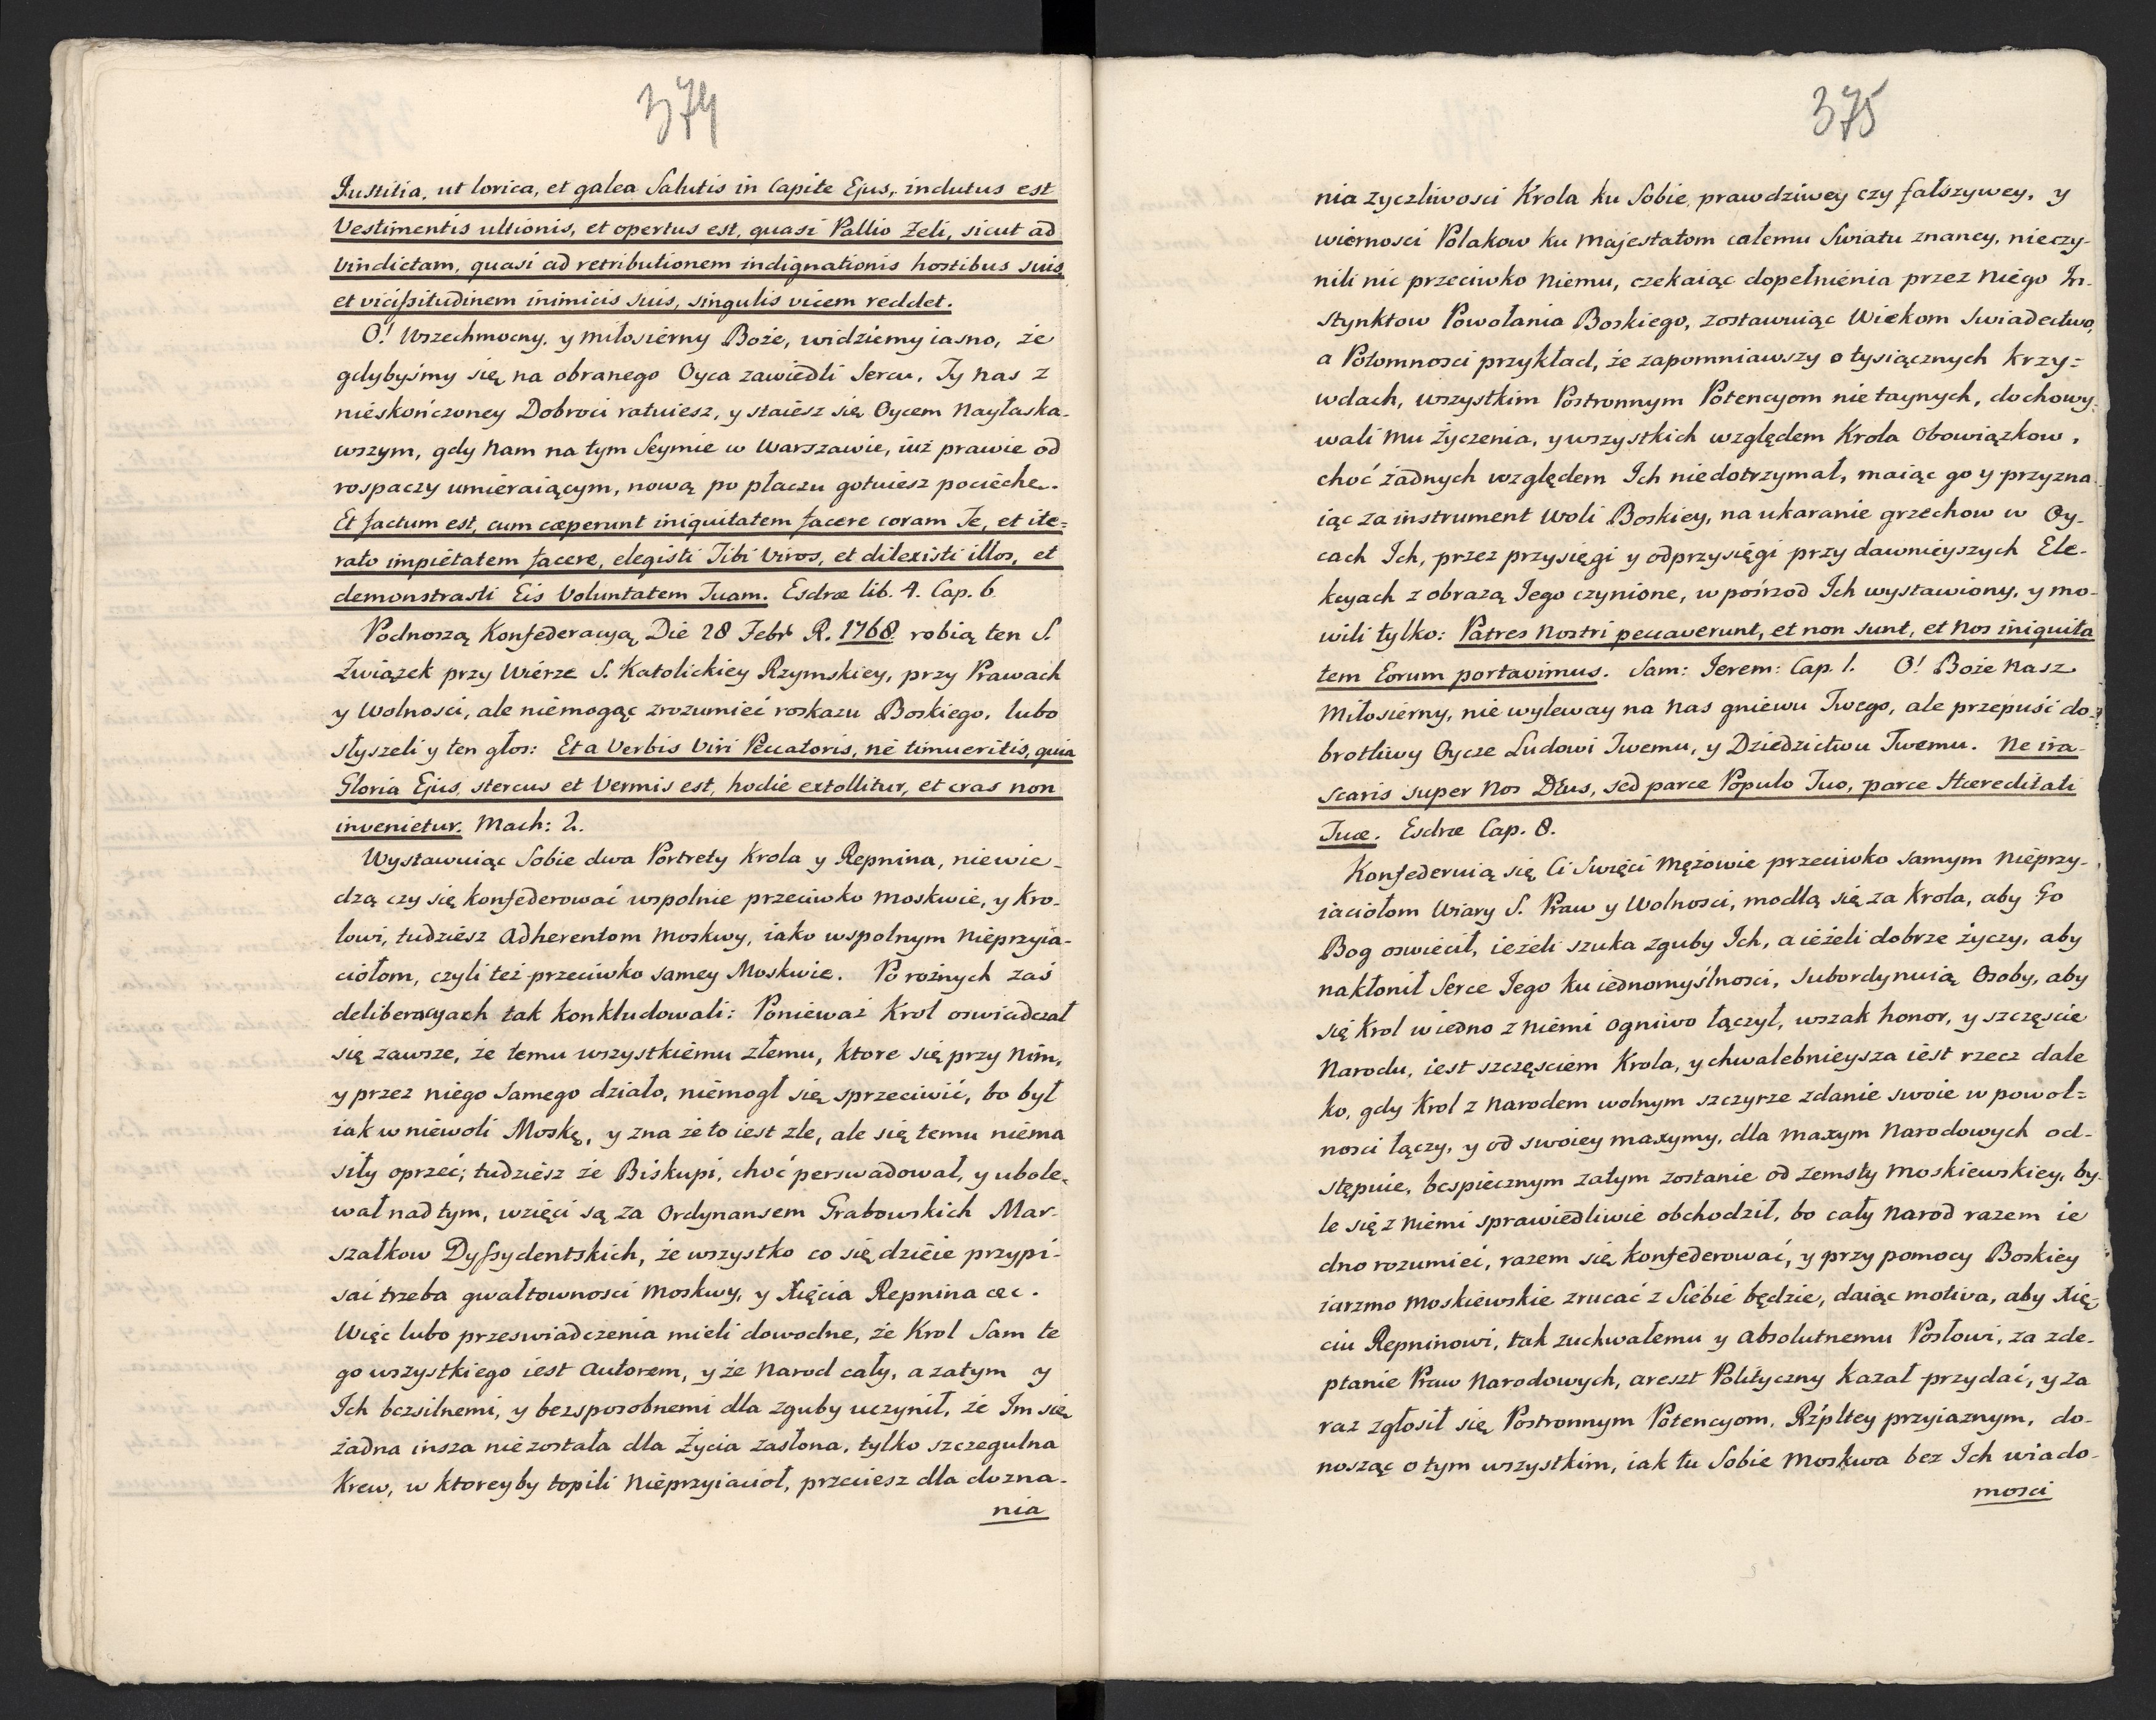 374
Justitia, ut lorica, et galea Salutis in Capite Ejus, indutus est
Vestimentis ultionis, et opertus est, quasi Pallio Zeli, sicut ad
vindictam, quasi ad retributionem indignationis hostibus suis,
et vicissitudinem inimicis suis, singulis vicem reddet.
O! Wszechmocny, y miłosierny Boże, widziemy iasno, że
gdybyśmy się na obranego Oyca zawiedli Sercu, Ty nas z
nieskończoney Dobroci ratuiesz, y staiesz się Oycem Nayłaska-
wszym, gdy Nam na tym Seymie w Warszawie, iuż prawie od
rospaczy umieraiącym, nową po płaczu gotuiesz pociechę.
Et factum est, cum cæperunt iniquitatem facere coram Te, et ite=
rato impietatem facere, elegisti Tibi Viros, et dilexisti illos, et
demonstrasti Eis Voluntatem Tuam. Esdræ lib. 4. Cap. 6.
Podnoszą Konfederacyą Die 28 Febr R. 1768. robią ten S.
Związek przy Wierze S. Katolickiey Rzymskiey, przy Prawach
y Wolnosci, ale niemogąc zrozumieć roskazu Boskiego, lubo
słyszeli y ten głos: Et a Verbis Viri Peccatoris, ne timueritis, quia
Gloria Ejus, stercus et Vermis est, hodie extollitur, et cras non
invenietur. Mach: 2.
Wystawuiąc Sobie dwa Portrety Krola y Repnina, niewie-
dzą czy się konfederować wspolnie przeciwko Moskwie, y Kro-
lowi, tudziesz Adherentom Moskwy, iako wspolnym Nieprzyia-
ciołom, czyli też przeciwko samey Moskwie. Po rożnych zaś
deliberacyach tak konkludowali: Ponieważ Krol oswiadczał
się zawsze, że temu wszystkiemu złemu, ktore się przy Nim,
y przez niego samego działo, niemogł się sprzeciwić, bo był
iak w niewoli Moskę, y zna że to iest zle, ale się temu niema
siły oprzeć; tudziesz że Biskupi, choć perswadował, y ubole-
wał nad tym, wzięci są za Ordynansem Grabowskich Mar-
szałkow Dyssydentskich, że wszystko co się dzieie przypi-
sać trzeba gwałtownosci Moskwy, y Xięcia Repnina &c.
Więc lubo przeswiadczenia mieli dowodne, że Krol Sam te
go wszystkiego iest Autorem, y że Narod cały, a zatym y
Ich bezsilnemi, y bezsposobnemi dla zguby uczynił, że Im się
żadna insza niezostała dla Życia zasłona, tylko szczegulna
Krew, w ktoreyby topili Nieprzyiacioł, przeciesz dla dozna-
nia
375
nia zyczliwosci Krola ku Sobie prawdziwey czy fałszywey, y
wiernosci Polakow ku Majestatom całemu Swiatu znaney, nieczy-
nili nic przeciwko Niemu, czekaiąc dopełnienia przez Niego In-
stynktow Powołania Boskiego, zostawuiąc Wiekom Swiadectwo,
a Potomnosci przykład, że zapomniawszy o tysiącznych krzy=
wdach, wszystkim Postronnym Potencyom nie taynych, dochowy-
wali Mu Życzenia, y wszystkich względem Krola Obowiązkow,
choć żadnych względem Ich niedotrzymał, maiąc go y przyzna-
iąc za instrument Woli Boskiey, na ukaranie grzechow w Oy-
cach Ich, przez przysięgi y odprzysięgi przy dawnieyszych Ele-
kcyach z obrazą Jego czynione, w pośrzod Ich wystawiony, y mo-
wili tylko: Patres Nostri peccaverunt, et non sunt, et Nos iniquita
tem Eorum portavimus. Sam: Jerem: Cap. 1. O! Boże Nasz
Miłosierny, nie wyleway na Nas gniewu Twego, ale przepuść do-
brotliwy Oycze Ludowi Twemu, y Dziedzictwu Twemu. Ne ira-
scaris super Nos Dñus, sed parce Populo Tuo, parce Hæreditati
Tuæ. Esdræ Cap. 8.
Konfederuią się Ci Swięci Mężowie przeciwko samym Nieprzy-
iaciołom Wiary S. Praw y Wolnosci, modlą się za Krola, aby Go
Bog oswiecił, ieżeli szuka zguby Ich, a ieżeli dobrze życzy, aby
nakłonił Serce Jego ku iednomyślnosci, Subordynuią Osoby, aby
się Krol w iedno z niemi ogniwo łączył, wszak honor, y szczęscie
Narodu, iest szczęsciem Krola, y chwalebnieysza iest rzecz dale
ko, gdy Krol z Narodem wolnym szczyrze zdanie swoie w powol=
nosci łączy, y od swoiey maxymy, dla Maxym Narodowych od-
stępuie, bespiecznym zatym zostanie od zemsty Moskiewskiey, by-
le się z niemi sprawiedliwie obchodził, bo cały Narod razem ie
dno rozumieć, razem się konfederować, y przy pomocy Boskiey
iarzmo Moskiewskie zrucać z Siebie będzie, daiąc motiva, aby Xię-
ciu Repninowi, tak zuchwałemu y Absolutnemu Posłowi, za zde-
ptanie Praw Narodowych, areszt Polityczny kazał przydać, y za
raz zgłosił się Postronnym Potencyom, Rzpltey przyiaznym, do-
nosząc o tym wszystkim, iak tu Sobie Moskwa bez Ich wiado-
mosci